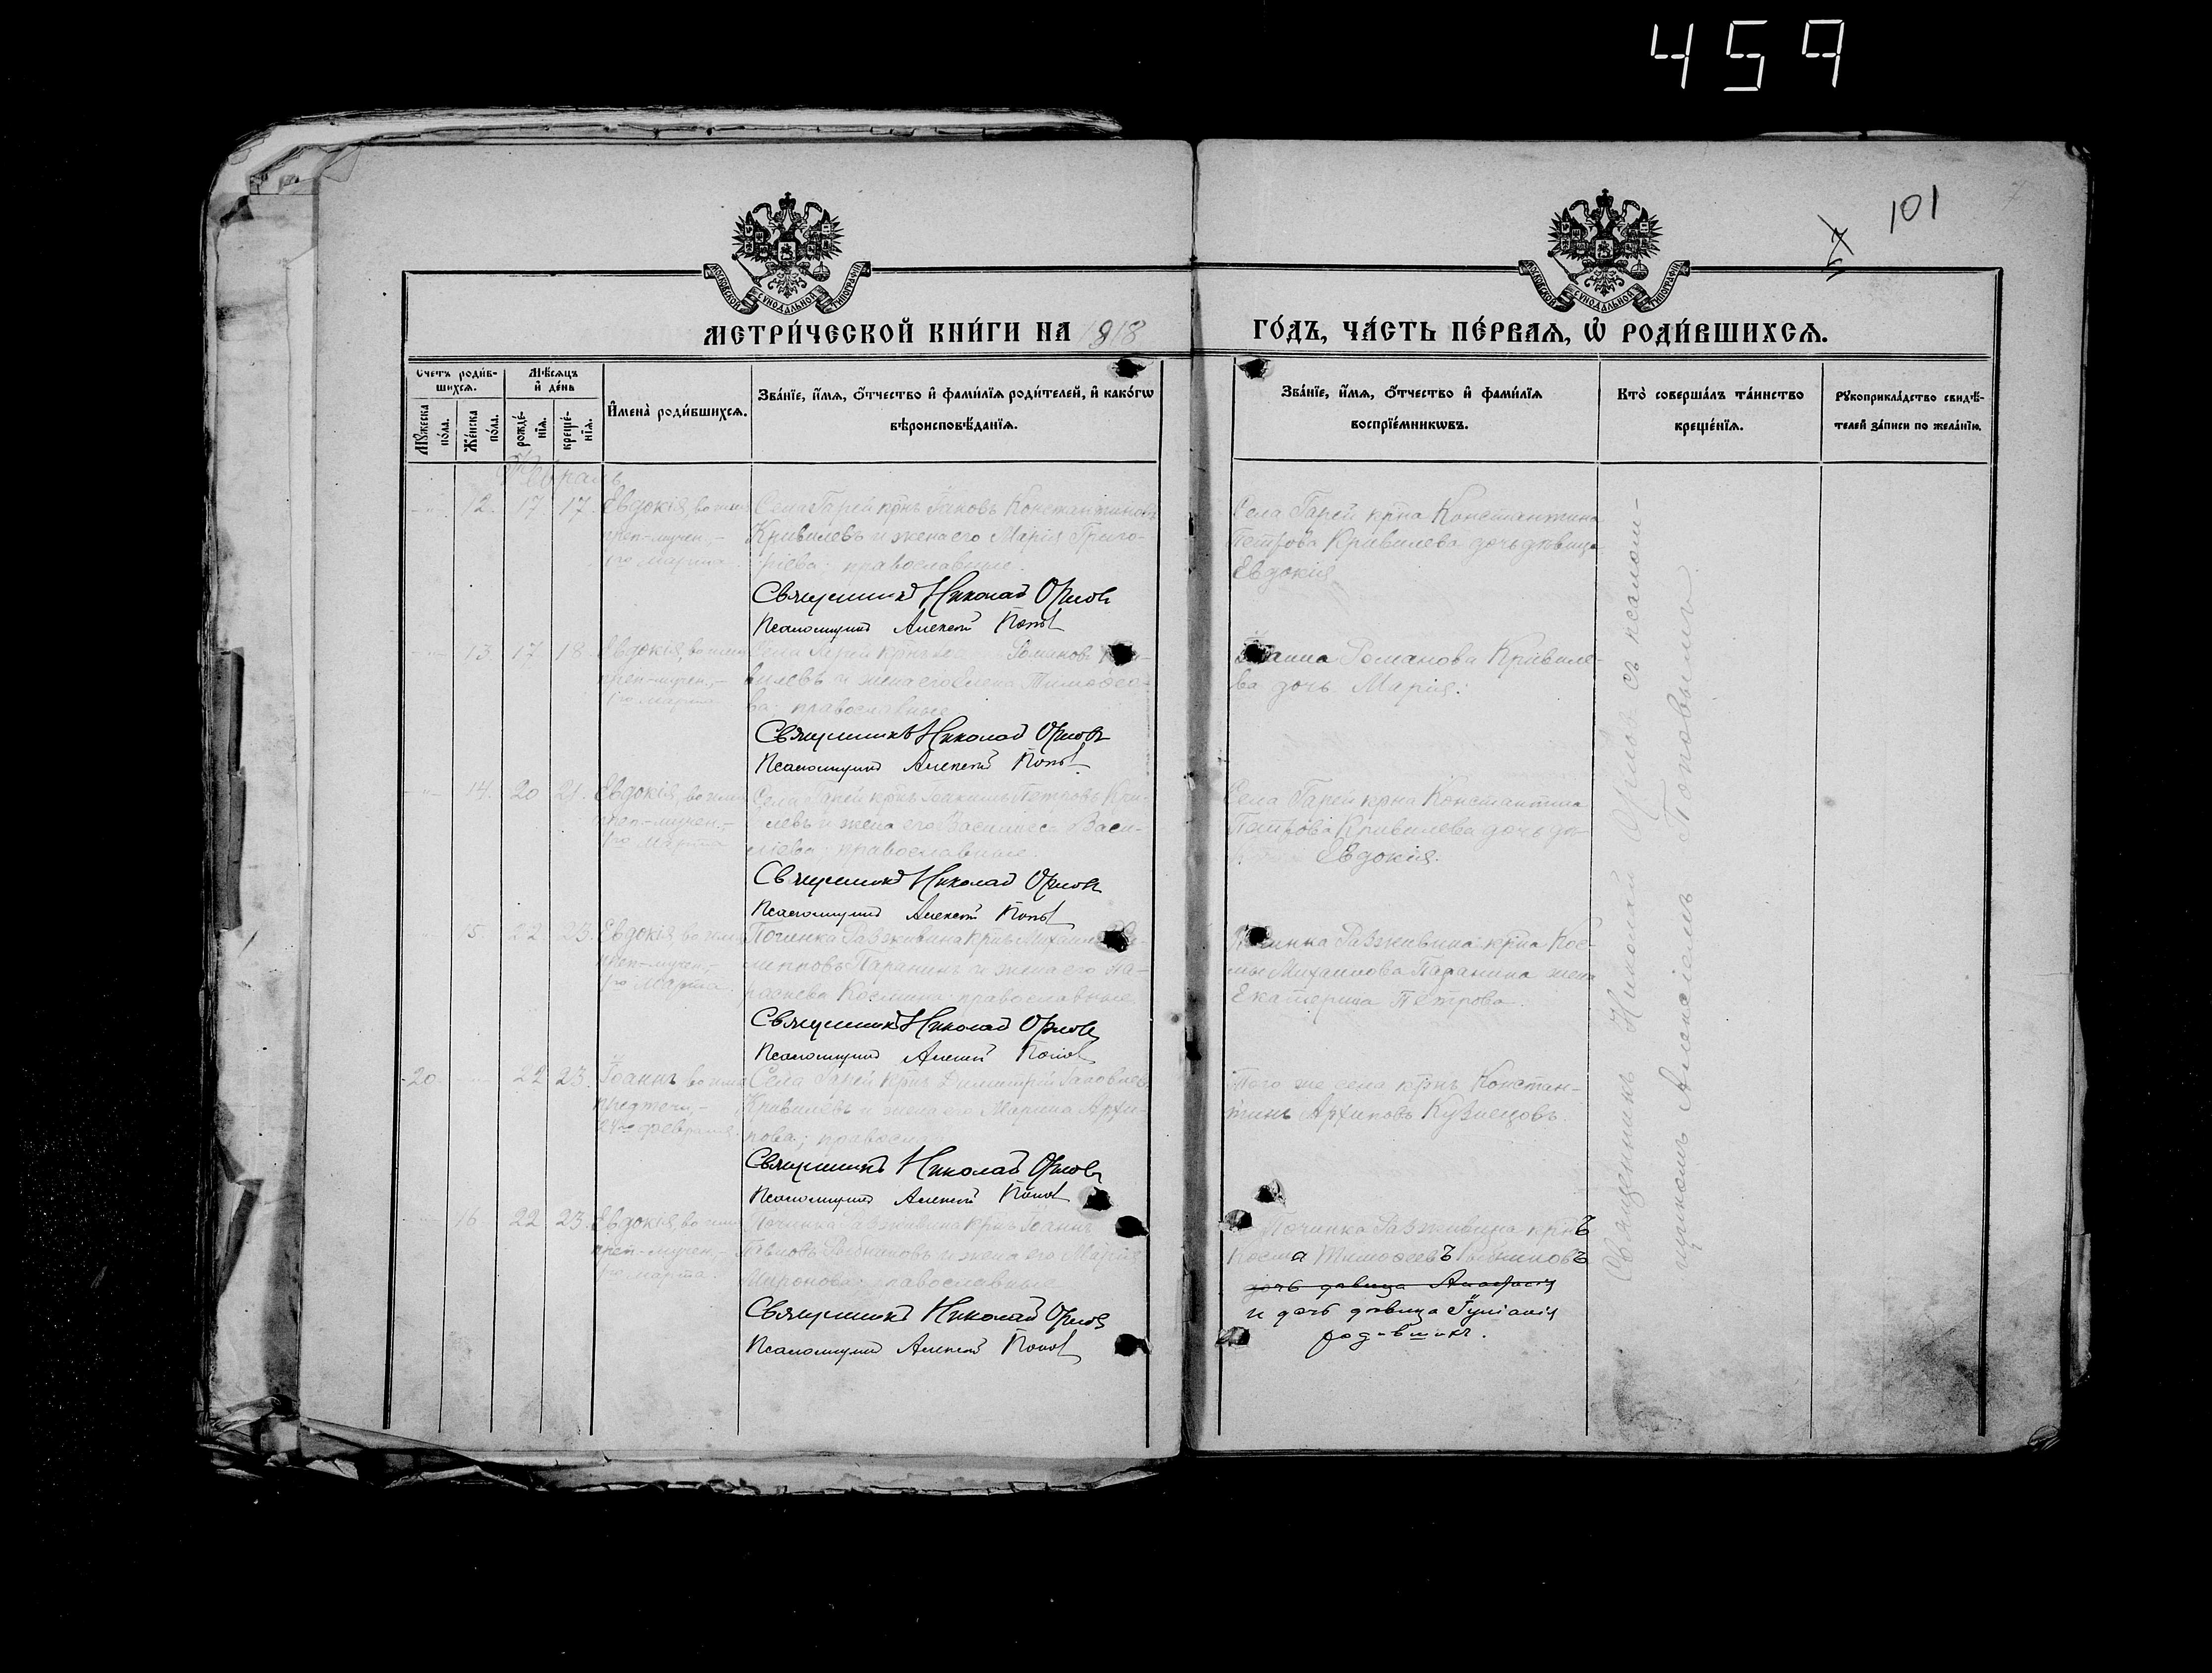 459
101
МОСКОВСКОЙ СУНОДАЛЬНОЙ ТИПОГРАФІИ
МОСКОВСКОЙ СУНОДАЛЬНОЙ ТИПОГРАФІИ
МЕТРИ́ЧЕСКОЙ КНИ́ГИ НА 1918
ГО́ДЪ, ЧА́СТЬ ПЕ́РВАЯ, Ѡ҆ РОДИ́ВШИХСЯ.
Счетъ роди́в-
шихся.
Мѣ́сяцъ
и҆ де́нь
Мꙋ́жеска по́ла.
Же́нска по́ла.
рожде́-
нїя.
креще́-
нїя.
И҆мена̀ роди́вшихся.
Зва́нїе, и҆́мя, ѻ҆́тчество и҆ фами́лїя роди́телей, и҆ како́гѡ
вѣроисповѣ́данїя.
Зва́нїе, и҆́мя, ѻ҆́тчество и҆ фами́лїя
воспрїе́мникѡвъ.
Кто̀ соверша́лъ та́инство
креще́нїя.
Рꙋкоприкла́дство свидѣ́-
телей за́писи по жела́нїю.
Февраль
12. 17. 17. Евдокія, во имя
преп-мучен.,-
1го марта.
Села Гарей крнъ Іаковъ Константиновъ
Кривилевъ и жена его Марія Григо-
ріева; православные.
Священникъ Николай Орловъ
Псаломщикъ Алексей Поповъ
Села Гарей крна Константина
Петрова Кривилева дочь дѣвица
Евдокія
13. 17 18. Евдокія, во имя
преп-мучен.,-
1го марта
Села Гарей крнъ Романовъ
вилевъ и жена его Елена Тимоѳее-
ва; православные.
Священникъ Николай Орловъ
Псаломщикъ Алексей Поповъ
Іоанна Романова Кривиле-
ва дочь Марія.
14. 20 21. Евдокія, во имя
преп-мучен.,-
1го марта
Села Гарей крнъ Іоакимъ Петровъ Кри-
левъ и жена его Василисса Васи-
ліева; православные.
Священникъ Николай Орловъ
Псаломщикъ Алексей Поповъ
Села Гарей крна Константина
Петрова Кривилева дочь дѣ-
Евдокія.
15. 22 23. Евдокія во имя
преп-мучен.,-
1го марта.
Починка Разживина крнъ Михаилъ
липповъ Паранинъ и жена его Па-
раскева Космина; православные
Священникъ Николай Орловъ
Псаломщикъ Алексей Поповъ
Починка Разживина крна Кос-
мы Михаилова Паранина жена
Екатерина Петрова.
20. 22 23. Іоаннъ во имя
предтечи,-
24го февраля.
Села Гарей крнъ Димитрій Іаковлевъ
Кривилевъ и жена его Марина Архи-
пова; правосла
Священникъ Николай Орловъ
Псаломщикъ Алексей Поповъ
Того же села крнъ Констан-
тинъ Архиповъ Кузнецовъ.
16 22. 23. Евдокія, во имя
преп-мучен.,-
1го марта.
Починка Разживина крнъ Іоаннъ
Павловъ и жена его Марія
Миронова; православные
Священникъ Николай Орловъ
Псаломщикъ Алексей Поповъ
Починка Разживина крнъ
Косма Тимоѳеевъ
дочь дѣвица
и дочь дѣвица Іуліанія
Священникъ Николай Орловъ съ псалом-
щикомъ Алексіемъ Поповымъ